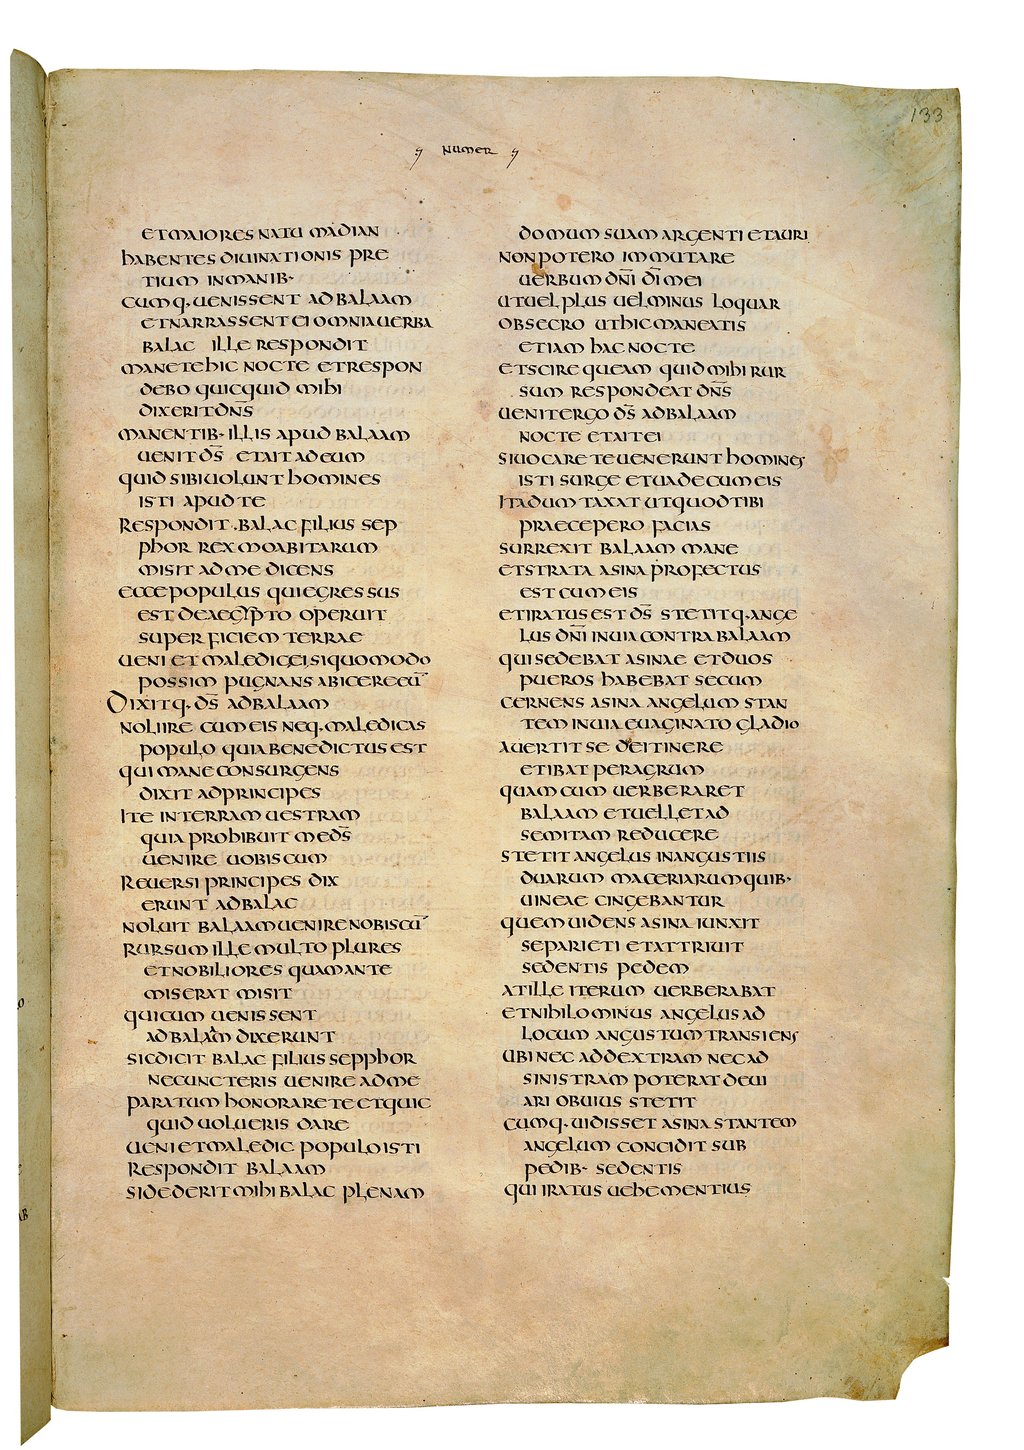 133
NUMER
ET MAIORES NATU MADIAN
HABENTES DIUINATIONIS PRE
TIUM IN MANIB·
CUMQ· UENISSENT AD BALAAM
ET NARRASSENT EI OMNIA UERBA
BALAC ILLE RESPONDIT
MANETE HIC NOCTE ET RESPON
DEBO QUICQUID MIHI
DIXERIT DN̄S
MANENTIB· ILLIS APUD BALAAM
UENIT D̄S ET AIT AD EUM
QUID SIBI UOLUNT HOMINES
ISTI APUD TE
RESPONDIT BALAC FILIUS SEP
PHOR REX MOABITARUM
MISIT AD ME DICENS
ECCE POPULUS QUI EGRESSUS
EST DE AEGYPTO OPERUIT
SUPERFICIEM TERRAE
UENI ET MALEDIC EI SI QUOMODO
POSSIM PUGNANS ABICERE EŪ
DIXITQ· D̄S AD BALAAM
NOLI IRE CUM EIS NEQ· MALEDICAS
POPULO QUIA BENEDICTUS EST
QUI MANE CONSURGENS
DIXIT AD PRINCIPES
ITE IN TERRAM UESTRAM
QUIA PROHIBUIT ME D̄S
UENIRE UOBISCUM
REUERSI PRINCIPES DIX
ERUNT AD BALAC
NOLUIT BALAAM UENIRE NOBISCŪ
RURSUM ILLE MULTO PLURES
ET NOBILIORES QUAM ANTE
MISERAT MISIT
QUI CUM UENISSENT
AD BALAAM DIXERUNT
SIC DICIT BALAC FILIUS SEPPHOR
NE CUNCTERIS UENIRE AD ME
PARATUM HONORARE TE ET QUIC
QUID UOLUERIS DARE
UENI ET MALEDIC POPULO ISTI
RESPONDIT BALAAM
SI DEDERIT MIHI BALAC PLENAM
DOMUM SUAM ARGENTI ET AURI
NON POTERO IMMUTARE
UERBUM DN̄I DĪ MEI
UT UEL PLUS UEL MINUS LOQUAR
OBSECRO UT HIC MANEATIS
ETIAM HAC NOCTE
ET SCIRE QUEAM QUID MIHI RUR
SUM RESPONDEAT DN̄S
UENIT ERGO D̄S AD BALAAM
NOCTE ET AIT EI
SI UOCARE TE UENERUNT HOMINES
ISTI SURGE ET UADE CUM EIS
ITA DUMTAXAT UT QUOD TIBI
PRAECEPERO FACIAS
SURREXIT BALAAM MANE
ET STRATA ASINA PROFECTUS
EST CUM EIS
ET IRATUS EST D̄S STETITQ· ANGE
LUS DN̄I IN UIA CONTRA BALAAM
QUI SEDEBAT ASINAE ET DUOS
PUEROS HABEBAT SECUM
CERNENS ASINA ANGELUM STAN
TEM IN UIA EUAGINATO GLADIO
AUERTIT SE DE ITINERE
ET IBAT PER AGRUM
QUAM CUM UERBERARET
BALAAM ET UELLET AD
SEMITAM REDUCERE
STETIT ANGELUS IN ANGUSTIIS
DUARUM MACERIARUM QUIB·
UINEAE CINGEBANTUR
QUEM UIDENS ASINA IUNXIT
SE PARIETI ET ATTRIUIT
SEDENTIS PEDEM
AT ILLE ITERUM UERBERABAT
ET NIHILOMINUS ANGELUS AD
LOCUM ANGUSTUM TRANSIENS
UBI NEC AD DEXTRAM NEC AD
SINISTRAM POTERAT DEUI
ARI OBUIUS STETIT
CUMQ· UIDISSET ASINA STANTEM
ANGELUM CONCIDIT SUB
PEDIB· SEDENTIS
QUI IRATUS UEHEMENTIUS